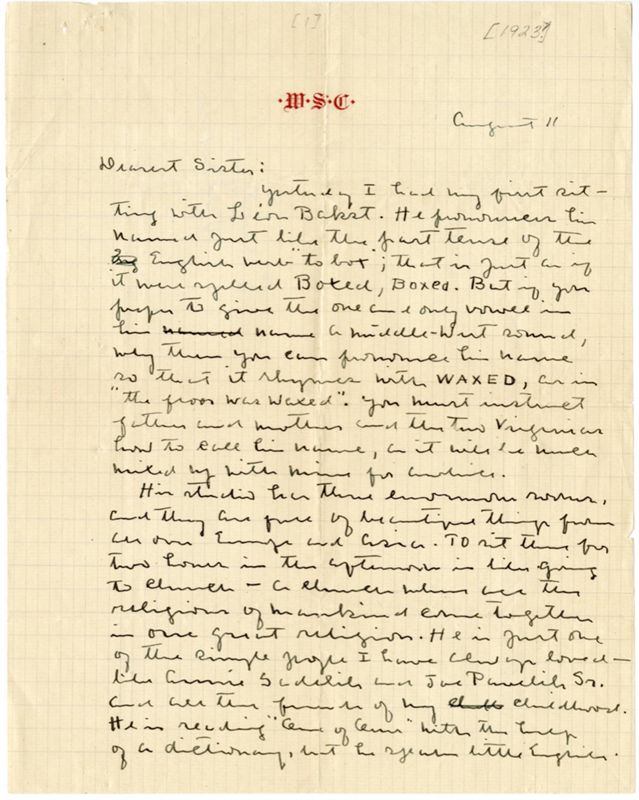 [1]
[1923?]
·W·S·C·
August 11
Dearest Sister:
Yesterday I had my first sit-
ting with Léon Bakst. He pronounces his
named just like the past tense of the
English verb "to box"; that is just as if
it were spelled Boxed, Boxed. But if you
prefer to give the one and only vowel in
his named name a middle-West sound,
why then you can pronounce his name
so that it rhymes with WAXED, as in
"the floor was waxed". You must instruct
father and mother and the two Virginias
how to call his name, as it will be much
mixed up with mine for awhile.
His studio has three enormous rooms,
and they are full of beautiful things from
all over Europe and Asia. To sit there for
two hours in the afternoon is like going
to church - a church where all the
religions of mankind come together
in one great religion. He is just one
of the simple people I have always loved -
like Annie Sadelik and Joe Pavelik Sr.
and all the friends of my childhood.
He is reading "One of Ours" with the help
of a dictionary, but he speaks little English.